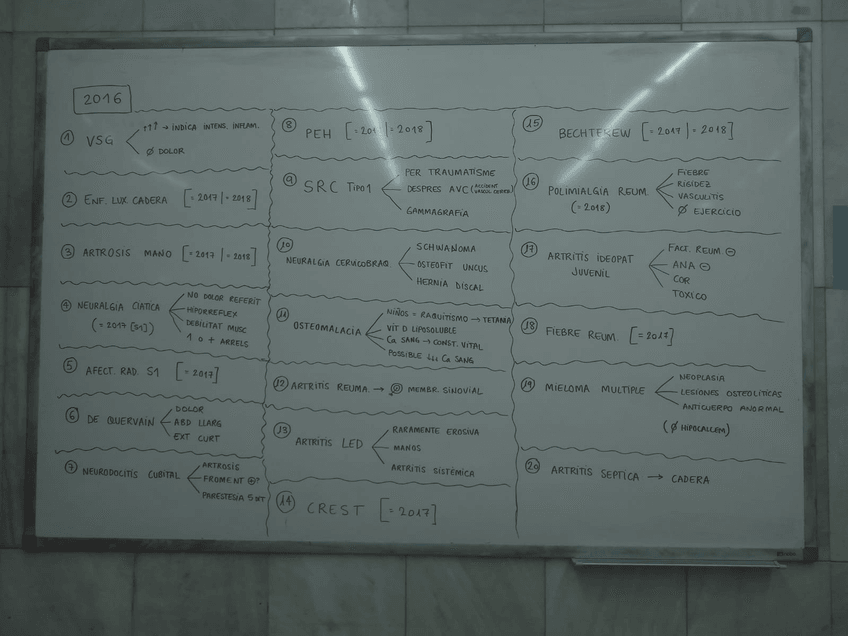 2016
① VSG
↑↑↑ → INDICA INTENS. INFLAM.
∅ DOLOR
② ENF. LUX. CADERA [=2017|=2018]
③ ARTROSIS MANO [=2017|=2018]
④ NEURALGIA CIATICA
(=2017 [S1])
NO DOLOR REFERIT
HIPORREFLEX
DEBILITAT MUSC
1 O + ARRELS
⑤ AFECT. RAD. S1 [=2017]
⑥ DE QUERVAIN
DOLOR
ABD LLARG
EXT CURT
⑦ NEURODOCITIS CUBITAL
ARTROSIS
FROMENT ⊕?
PARESTESIA 5
⑧ PEH [=2017|=2018]
⑨ SRC TIPO 1
PER TRAUMATISME
DESPRES AVC (ACCIDENT
VASCUL CEREB)
GAMMAGRAFIA
⑩ NEURALGIA CERVICOBRAQ.
SCHWANOMA
OSTEOFIT UNCUS
HERNIA DISCAL
⑪ OSTEOMALACIA
NIÑOS = RAQUITISMO → TETANIA
VIT D LIPOSOLUBLE
Ca SANG → CONST. VITAL
POSSIBLE ↓↓↓ Ca SANG
⑫ ARTRITIS REUMA. → ∅ MEMBR. SINOVIAL
⑬ ARTRITIS LED
RARAMENTE EROSIVA
MANOS
ARTRITIS SISTÉMICA
⑭ CREST [=2017]
⑮ BECHTEREW [=2017|=2018]
⑯ POLIMIALGIA REUM.
(=2018)
FIEBRE
RIGIDEZ
VASCULITIS
∅ EJERCICIO
⑰ ARTRITIS IDEOPAT
JUVENIL
FACT. REUM ⊖
ANA ⊖
COR
TOXICO
⑱ FIEBRE REUM. [=2017]
⑲ MIELOMA MULTIPLE
NEOPLASIA
LESIONES OSTEOLÍTICAS
ANTICUERPO ANORMAL
(∅ HIPOCALCEM)
⑳ ARTRITIS SEPTICA → CADERA